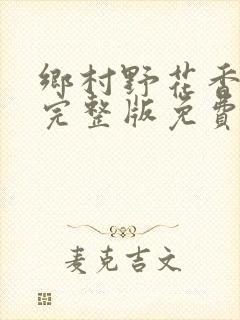 鄉村野花香
完整版免費
麦克吉文